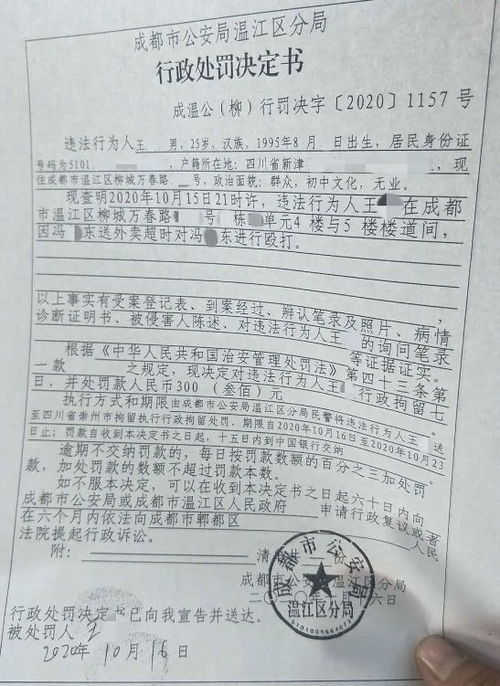 成都市公安局温江区分局
行政处罚决定书
成温公（柳）行罚决字〔2020〕1157 号
违法行为人王 男，25岁，汉族，1995年8月 日出生，居民身份证
号码为5101 ，户籍所在地：四川省新津 ，现
住成都市温江区柳城万春路 号，政治面貌：群众，初中文化，无业。
现查明2020年10月15日21时许，违法行为人王 在成都
市温江区柳城万春路 号 栋 单元4 楼与5 楼楼道间，
因冯 东送外卖超时对冯 东进行殴打。
以上事实有受案登记表、到案经过、辨认笔录及照片、病情
诊断证明书、被侵害人陈述、对违法行为人王 的询问笔录
等证据证实。
根据《中华人民共和国治安管理处罚法》第四十三条第
一款 之规定，现决定对违法行为人王 行政拘留七
日，并处罚款人民币300（叁佰）元
执行方式和期限由成都市公安局温江区分局民警将违法行为人王 送
至四川省崇州市拘留执行行政拘留处罚，期限自2020年10月16日至2020年10月23
日止；罚款自收到本决定书之日起，十五日内到中国银行交纳
逾期不交纳罚款的，每日按罚款数额的百分之三加处罚
款，加处罚款的数额不超过罚款本数。
如不服本决定，可以在收到本决定书之日起六十日内向
成都市公安局或成都市温江区人民政府 申请行政复议或者
在六个月内依法向成都市郫都区 人民
法院提起行政诉讼。
附： 清
成都市公安局温江区分局
二〇 六日
成都市公安局
温江区分局
行政处罚决定书已向我宣告并送达。
被处罚人 王
2020年 10月 16日